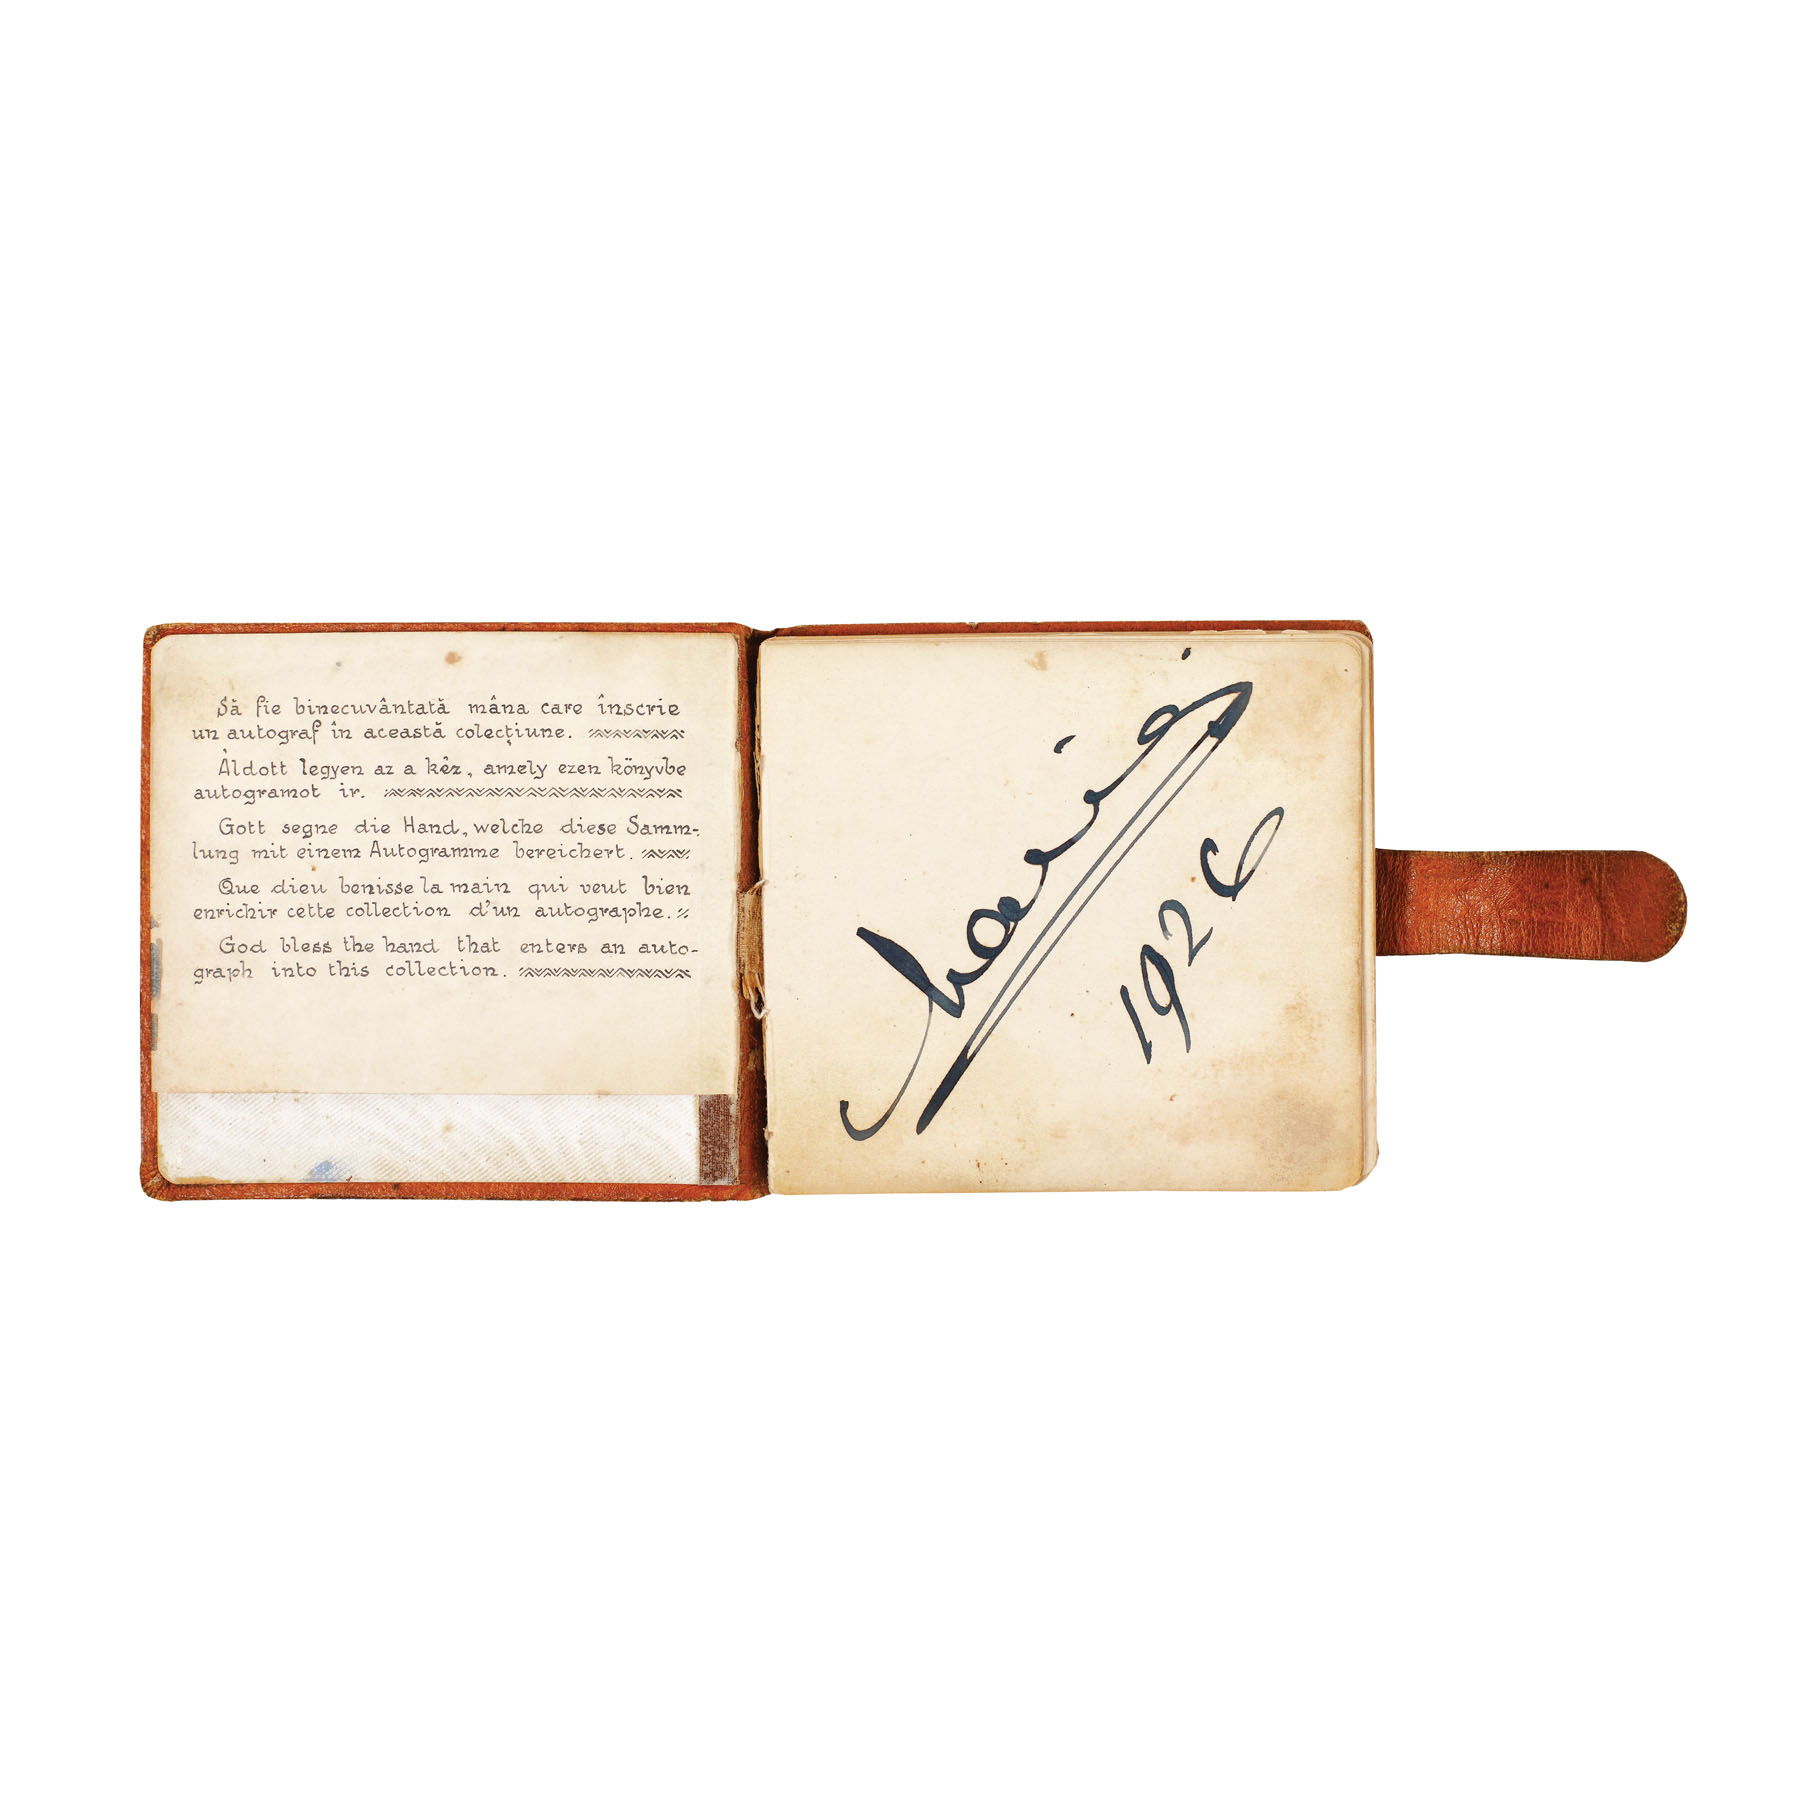 Să fie binecuvântată mâna care înscrie
un autograf în această colecțiune.
Áldott legyen az a kéz, amely ezen könyvbe
autogramot ir.
Gott segne die Hand, welche diese Samm-
lung mit einem Autogramme bereichert.
Que dieu benisse la main qui veut bien
enrichir cette collection d'un autographe.
God bless the hand that enters an auto-
graph into this collection.
Marie
1926